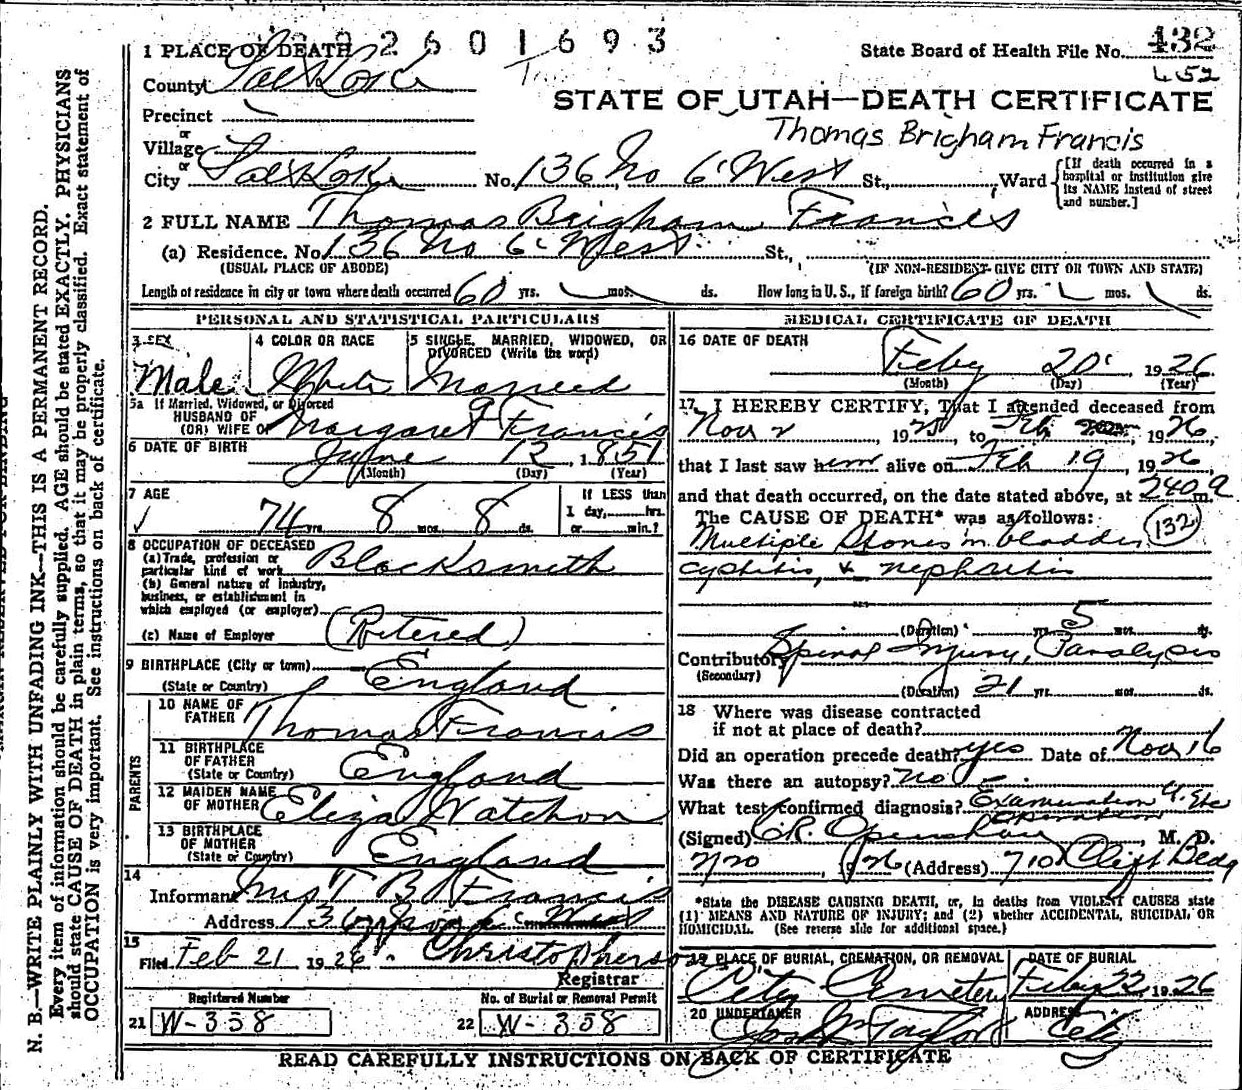 2 6 0 1 6 9 3
1 PLACE OF DEATH
State Board of Health File No. 432
452
County Salt Lake
STATE OF UTAH—DEATH CERTIFICATE
Precinct
Thomas Brigham Francis
or
Village
or
City Salt Lake No. 136 No 6 West St., Ward
[If death occurred in a hospital or institution give its NAME instead of street and number.]
2 FULL NAME Thomas Brigham Francis
(a) Residence. No. 136 No 6 West St.,
(USUAL PLACE OF ABODE) (IF NON-RESIDENT GIVE CITY OR TOWN AND STATE)
Length of residence in city or town where death occurred 60 yrs. mos. ds. How long in U. S., if foreign birth? 60 yrs. mos. ds.
PERSONAL AND STATISTICAL PARTICULARS
3 SEX
Male
4 COLOR OR RACE
White
5 SINGLE, MARRIED, WIDOWED, OR DIVORCED (Write the word)
Married
5a If Married, Widowed, or Divorced
HUSBAND OF
(OR) WIFE OF Margaret Francis
6 DATE OF BIRTH June 12, 1851
(Month) (Day) (Year)
7 AGE
74 yrs. 8 mos. 8 ds.
If LESS than
1 day, hrs.
or min.?
8 OCCUPATION OF DECEASED
(a) Trade, profession or
particular kind of work Blacksmith
(b) General nature of industry,
business, or establishment in
which employed (or employer)
(c) Name of Employer (Retired)
9 BIRTHPLACE (City or town)
(State or Country) England
PARENTS
10 NAME OF
FATHER Thomas Francis
11 BIRTHPLACE
OF FATHER
(State or Country) England
12 MAIDEN NAME
OF MOTHER Eliza
13 BIRTHPLACE
OF MOTHER
(State or Country) England
14
Informant Mrs T B Francis
Address 136 West
15
Filed Feb 21 1926 Christopherson
Registrar
Registered Number
21 W-358
No. of Burial or Removal Permit
22 W-358
MEDICAL CERTIFICATE OF DEATH
16 DATE OF DEATH
Feby 20 1926
(Month) (Day) (Year)
17 I HEREBY CERTIFY, That I attended deceased from
Nov 2, 1925, to Feb, 1926,
that I last saw him alive on Feb 19, 1926
and that death occurred, on the date stated above, at 240 a m.
The CAUSE OF DEATH* was as follows:
Multiple Stones in bladder (132)
cystitis, & nephritis
(Duration) yrs. 5 mos. ds.
Contributory Spinal Injury, Paralysis
(Secondary)
(Duration) 21 yrs. mos. ds.
18 Where was disease contracted
if not at place of death?
Did an operation precede death? yes Date of Nov 16
Was there an autopsy? no
What test confirmed diagnosis? Examination
operation
(Signed) CR. Openshaw, M. D.
1926 (Address) 710 Clift Bldg
*State the DISEASE CAUSING DEATH, or, in deaths from VIOLENT CAUSES state
(1) MEANS AND NATURE OF INJURY; and (2) whether ACCIDENTAL, SUICIDAL OR
HOMICIDAL. (See reverse side for additional space.)
19 PLACE OF BURIAL, CREMATION, OR REMOVAL
City Cemetery
DATE OF BURIAL
Feby 22 1926
20 UNDERTAKER
Taylor
ADDRESS
City
READ CAREFULLY INSTRUCTIONS ON BACK OF CERTIFICATE
N. B.—WRITE PLAINLY WITH UNFADING INK—THIS IS A PERMANENT RECORD.
Every item of information should be carefully supplied. AGE should be stated EXACTLY. PHYSICIANS
should state CAUSE OF DEATH in plain terms, so that it may be properly classified. Exact statement of
OCCUPATION is very important. See instructions on back of certificate.